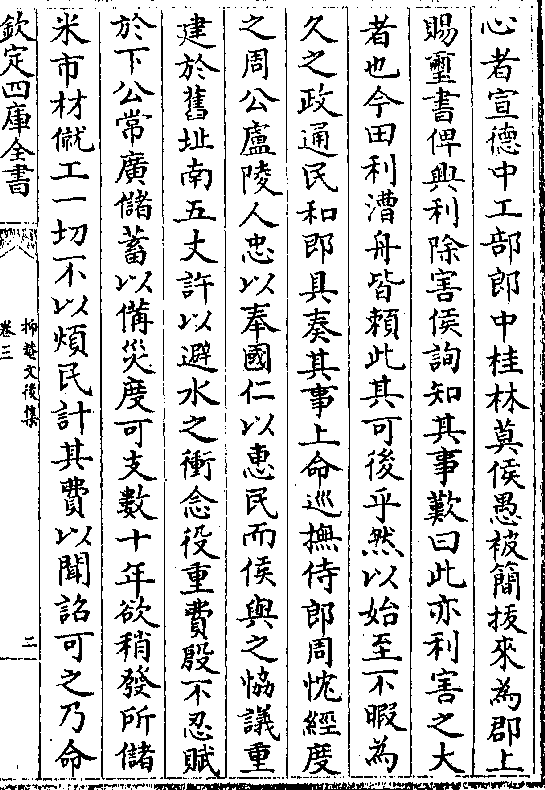 心者宣德中工部郎中桂林莫侯愚被簡拔來為郡上
賜璽書俾興利除害侯詢知其事歎曰此亦利害之大
者也今田利漕舟皆頼此其可後乎然以始至不暇為
久之政通民和即具奏其事上命巡撫侍郎周忱經度
之周公廬陵人忠以奉國仁以惠民而侯與之恊議重
建於舊址南五丈許以避水之衝念役重費殷不忍賦
於下公常廣儲蓄以備災度可支數十年欲稍發所儲
米市材僦工一切不以煩民計其費以聞詔可之乃命
欽定四庫全書
抑菴文後集
卷三
二